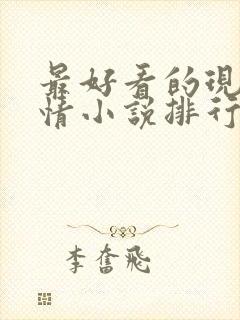 最好看的現
情小說排行
李奮飛